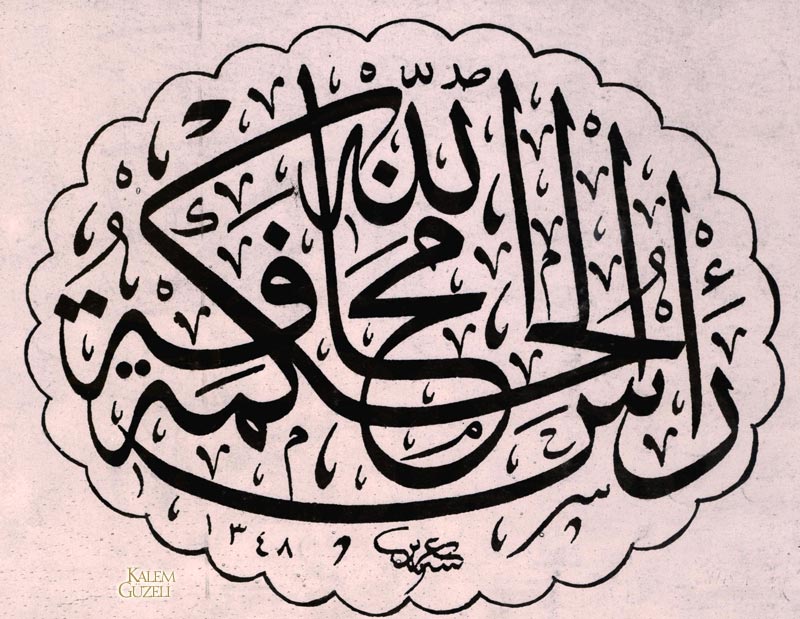 رأس الحكمة مخافة الله
١٣٤٨
KALEM
GÜZELİ